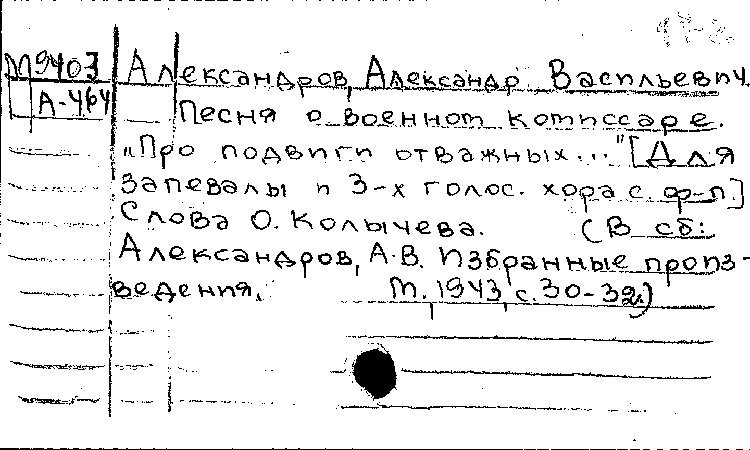 М9403 Александров, Александр Васильевич.
А-464 Песня о военном комиссаре.
„Про подвиги отважных..." [Для
запевалы и 3-х голос. хора с ф-п.]
Слова О. Колычева. (В сб:
Александров, А.В. Избранные произ-
ведения. М. 1943, с. 30-32.)